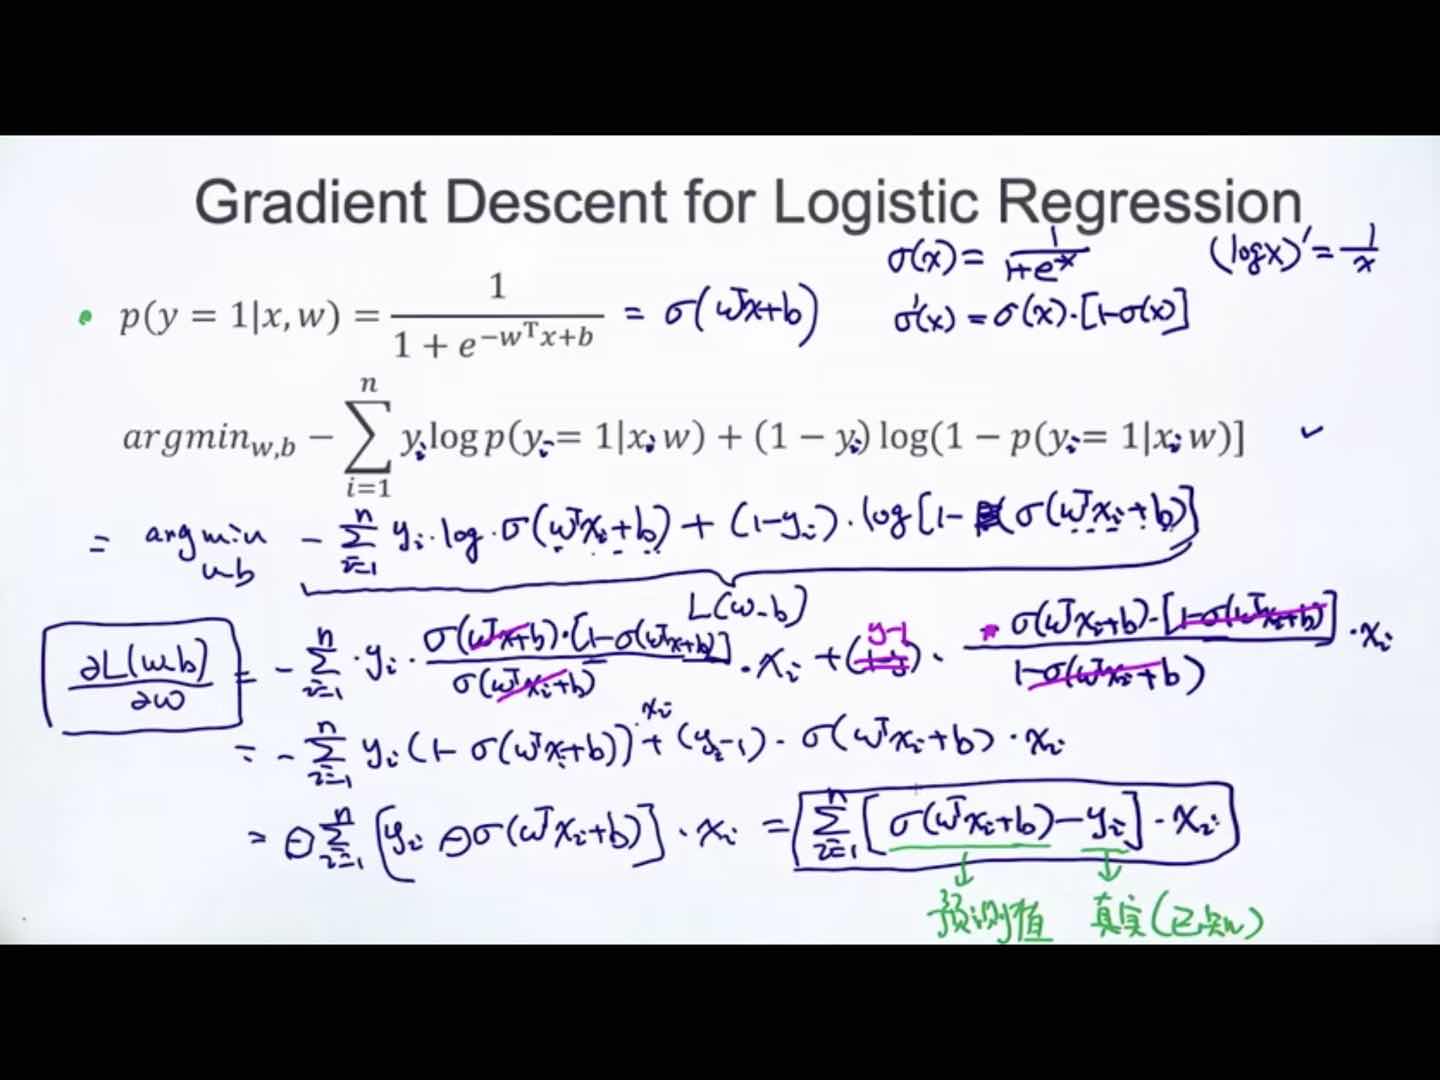 Gradient Descent for Logistic Regression
σ(x) = 1/(1+e^-x)   (logx)' = 1/x
p(y = 1|x, w) = 1/(1 + e^(−w^T x+b)) = σ(w^T x+b)   σ'(x) = σ(x)·[1-σ(x)]
argmin_w,b − ∑_{i=1}^n y_i log p(y_i = 1|x_i w) + (1 − y_i) log(1 − p(y_i = 1|x_i w)] ✓
= argmin_wb − ∑_{i=1}^n y_i·log·σ(w^T x_i+b) + (1-y_i)·log[1- σ(w^T x_i+b)]
L(w-b)
∂L(w-b)/∂w = − ∑_{i=1}^n ·y_i· σ(w^T x+b)·[1-σ(w^T x_i+b)]/σ(w^T x_i+b) ·x_i +(y-1)· σ(w^T x_i+b)·[1-σ(w^T x_i+b)]/1-σ(w^T x_i+b) ·x_i
= - ∑_{i=1}^n y_i(1- σ(w^T x_i+b))·x_i + (y_i-1)·σ(w^T x_i+b)·x_i
= ⊖∑_{i=1}^n [y_i ⊖σ(w^T x_i+b)]·x_i = ∑_{i=1}^n [σ(w^T x_i+b)-y_i]·x_i
预测值 真实(已知)